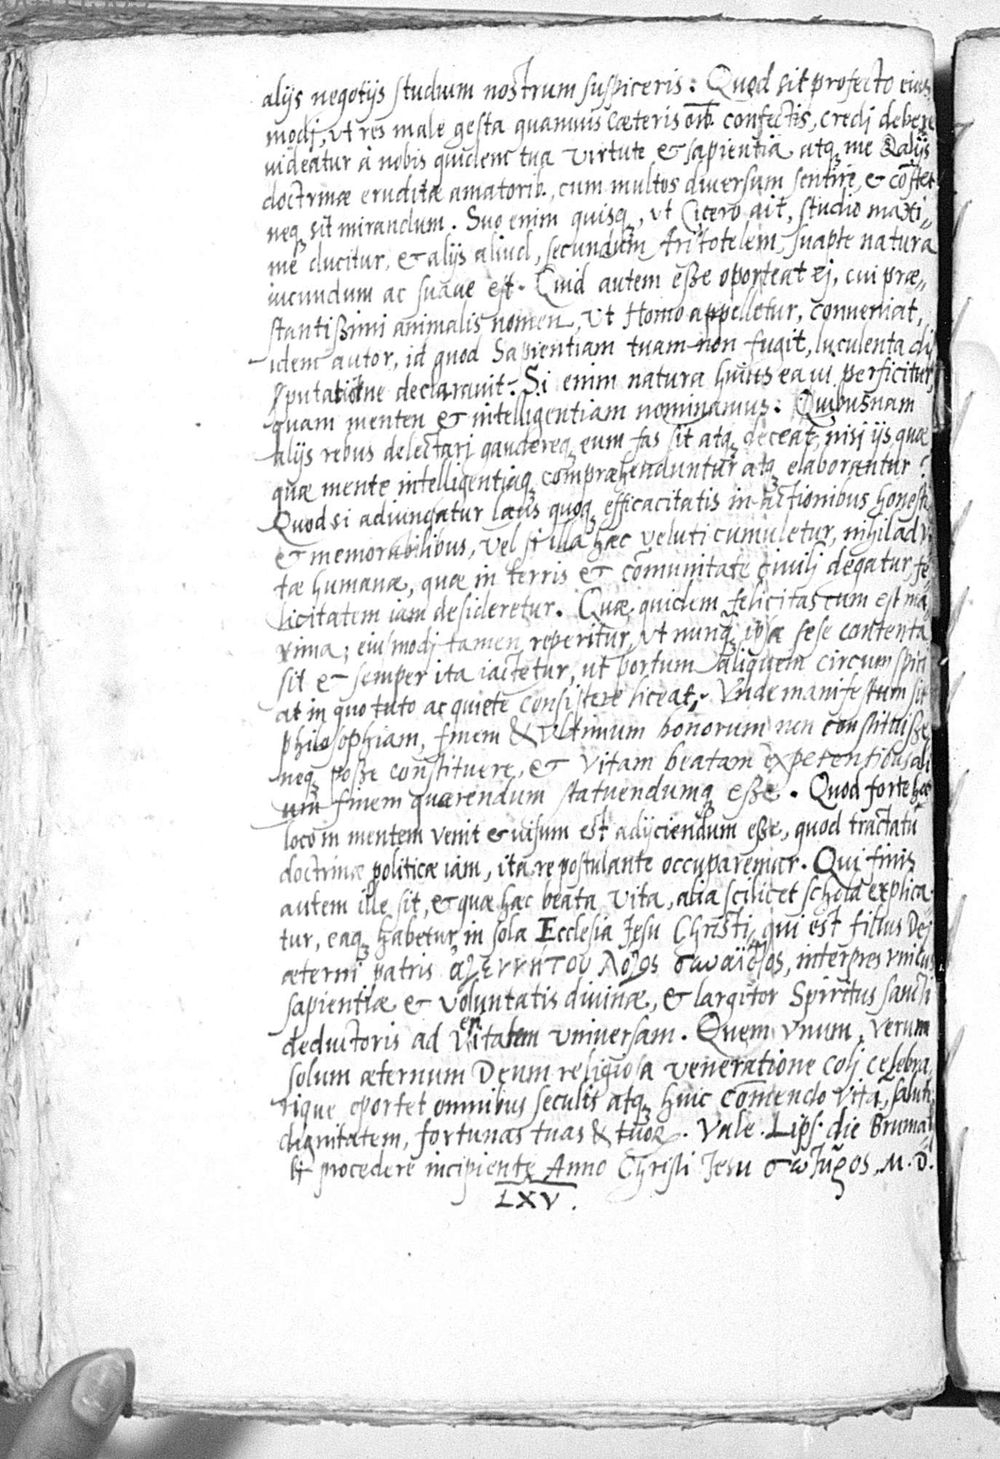 alijs negotijs studium nostrum suspiceris: Quod sit profecto eius
modj, ut res male gesta quamuis cæteris oib. confectis, credj debere
uideatur à nobis quidem tua virtute & sapientia atq me & alijs
doctrinæ eruditæ amatorib., cum multos diversum sentire, & costet
neq sit mirandum. Suo enim quisq, ut Cicero ait, studio maxi„
me ducitur, & alijs aliud, secundum Aristotelem, suapte natura
iucundum ac suaue est. Quid autem esse oporteat ej, cui præ„
stantissimi animalis nomen, ut Homo appelletur, conveniat,
idem autor, id quod Sapientiam tuam non fugit, luculenta di
sputatione declarauit. Si enim natura huius ea ui perficitur
quam mentem & intelligentiam nominamus: Quibusnam
alijs rebus delectarj gaudereq eum fas sit atq deceat, nisj ijs quæ
quæ mente intelligentiaq compræhenduntur atq elaborantur?
Quod si adiungatur quoq efficacitatis in actionibus honesti
& memorabilibus, vel si illa hæc veluti cumuletur, nihil ad vi
tæ humanæ, quæ in terris & comunitate civilj degatur, fe
licitatem iam desideretur. Quæ quidem felicitas cum est ma
xima; eiusmodj tamen reperitur, ut nunq ipsa sese contenta
sit & semper ita iactetur, ut portum aliquem circumspici
at in quo tuto ac quiete consistere liceat. Vnde manifestum sit
philosophiam, finem & ultimum bonorum non constituisse
neq posse constituere, & vitam beatam expetentibus ali
um finem quærendum statuendumq esse. Quod forte hoc
loco in mentem venit & uisum est adijciendum esse, quod tractatu
doctrinæ politicæ iam, ita re postulante occuparemur. Qui finis
autem ille sit, & quæ hæc beata vita, alia scilicet schola explica
tur, eaq habetur in sola Ecclesia Jesu Christi, qui est filius Dej
æterni patris ἀγεννήτου λόγος συναΐδιος, interpres unicus
sapientiæ & voluntatis divinæ, & largitor Spiritus sancti
deductoris ad Veritatem universam. Quem vnum, verum
solum æternum Deum religiosa veneratione colj celebra
rique oportet omnibus seculis atq huic comendo vitã, saluti
dignitatem, fortunas tuas & tuor. Vale. Lips. die Bruma
procedere incipiente Anno Christi Jesu σωτῆρος, M. D.
LXV.